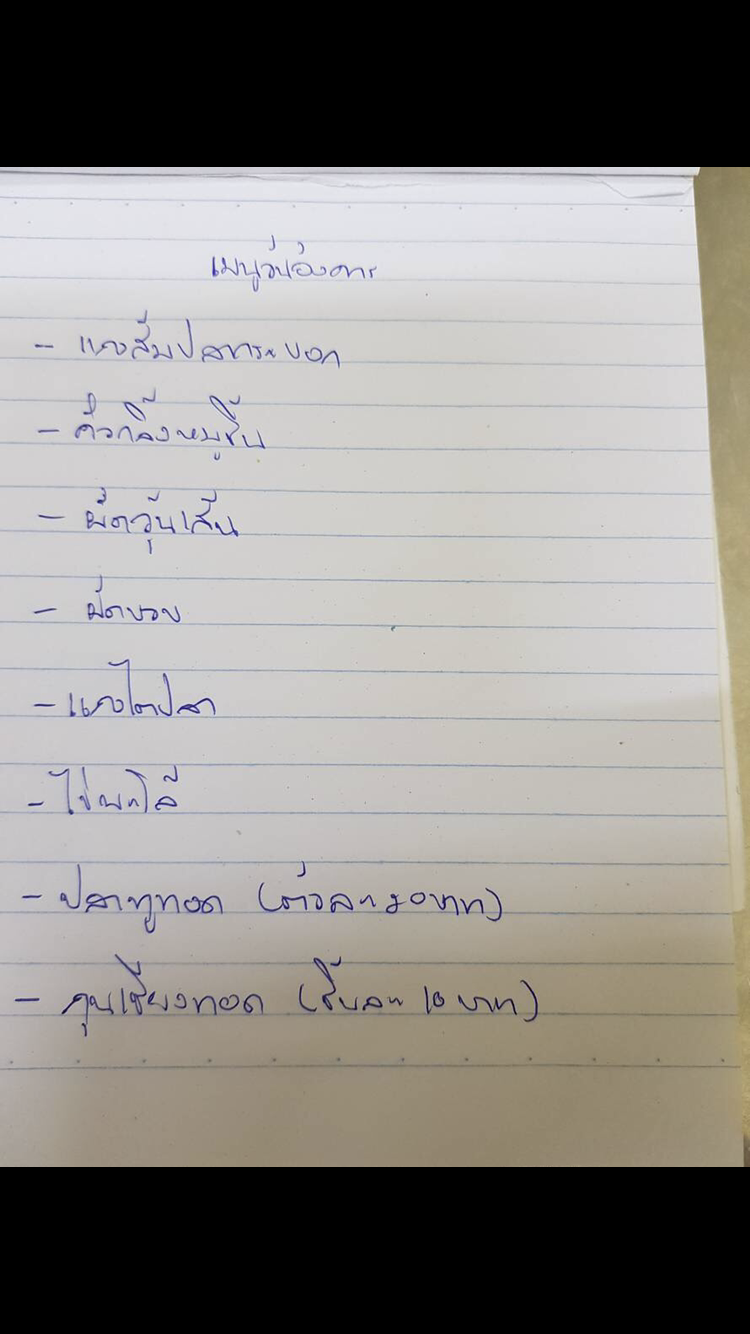 เมนูวันอังคาร
- แกงส้มปลากระบอก
- คั่วกลิ้งหมูชิ้น
- ผัดวุ้นเส้น
- ผัดบวบ
- แกงไตปลา
- ไข่พะโล้
- ปลาทูทอด (ตัวละ 20 บาท)
- กุนเชียงทอด (ชิ้นละ 10 บาท)